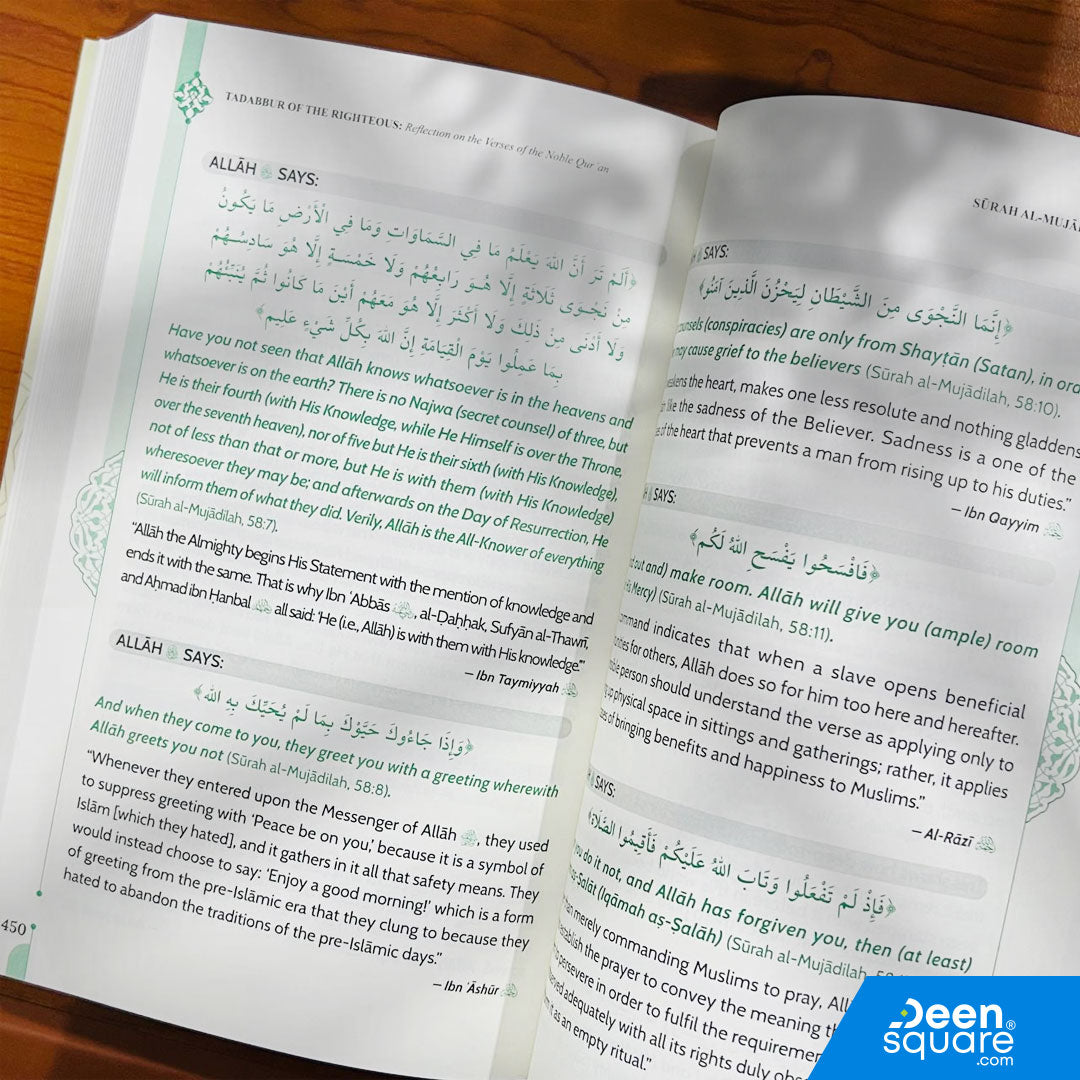 TADABBUR OF THE RIGHTEOUS: Reflection on the Verses of the Noble Qur'an
ALLĀH SAYS:
﴿أَلَمْ تَرَ أَنَّ اللهَ يَعْلَمُ مَا فِي السَّمَاوَاتِ وَمَا فِي الْأَرْضِ مَا يَكُونُ
مِنْ نَجْوَى ثَلَاثَةٍ إِلَّا هُوَ رَابِعُهُمْ وَلَا خَمْسَةٍ إِلَّا هُوَ سَادِسُهُمْ
وَلَا أَدْنَى مِنْ ذَلِكَ وَلَا أَكْثَرَ إِلَّا هُوَ مَعَهُمْ أَيْنَ مَا كَانُوا ثُمَّ يُنَبِّئُهُمْ
بِمَا عَمِلُوا يَوْمَ الْقِيَامَةِ إِنَّ اللهَ بِكُلِّ شَيْءٍ عَلِيم﴾
Have you not seen that Allāh knows whatsoever is in the heavens and
whatsoever is on the earth? There is no Najwa (secret counsel) of three, but
He is their fourth (with His Knowledge, while He Himself is over the Throne,
over the seventh heaven), nor of five but He is their sixth (with His Knowledge),
not of less than that or more, but He is with them (with His Knowledge)
wheresoever they may be; and afterwards on the Day of Resurrection, He
will inform them of what they did. Verily, Allāh is the All-Knower of everything
(Sūrah al-Mujādilah, 58:7).
"Allāh the Almighty begins His Statement with the mention of knowledge and
ends it with the same. That is why Ibn 'Abbās, al-Ḍaḥḥak, Sufyān al-Thawrī,
and Aḥmad ibn Ḥanbal all said: 'He (i.e., Allāh) is with them with His knowledge.'"
— Ibn Taymiyyah
ALLĀH SAYS:
﴿وَإِذَا جَاءُوكَ حَيَّوْكَ بِمَا لَمْ يُحَيِّكَ بِهِ الله﴾
And when they come to you, they greet you with a greeting wherewith
Allāh greets you not (Sūrah al-Mujādilah, 58:8).
"Whenever they entered upon the Messenger of Allāh , they used
to suppress greeting with 'Peace be on you,' because it is a symbol of
Islām [which they hated], and it gathers in it all that safety means. They
would instead choose to say: 'Enjoy a good morning!' which is a form
of greeting from the pre-Islāmic era that they clung to because they
hated to abandon the traditions of the pre-Islāmic days."
— Ibn 'Āshūr
450
SŪRAH AL-MUJĀ
SAYS:
﴿إِنَّمَا النَّجْوَى مِنَ الشَّيْطَانِ لِيَحْزُنَ الَّذِينَ آمَنُوا﴾
(conspiracies) are only from Shayṭān (Satan), in
may cause grief to the believers (Sūrah al-Mujādilah, 58:10).
the heart, makes one less resolute and nothing gladdens
like the sadness of the Believer. Sadness is a one of the
of the heart that prevents a man from rising up to his duties."
— Ibn Qayyim
SAYS:
﴿فَافْسَحُوا يَفْسَحِ اللهُ لَكُم﴾
out and) make room. Allāh will give you (ample) room
Mercy) (Sūrah al-Mujādilah, 58:11).
indicates that when a slave opens beneficial
for others, Allāh does so for him too here and hereafter.
person should understand the verse as applying only to
physical space in sittings and gatherings; rather, it applies
of bringing benefits and happiness to Muslims."
— Al-Rāzī
SAYS:
﴿فَإِذْ لَمْ تَفْعَلُوا وَتَابَ اللهُ عَلَيْكُمْ فَأَقِيمُوا الصَّلَاةَ
do it not, and Allāh has forgiven you, then (at least)
(Iqāmah aṣ-Ṣalāh) (Sūrah al-Mujādilah,
merely commanding Muslims to pray,
the prayer to convey the meaning
persevere in order to fulfil the
adequately with all its rights duly
as an empty ritual."
Deen
square®
.com